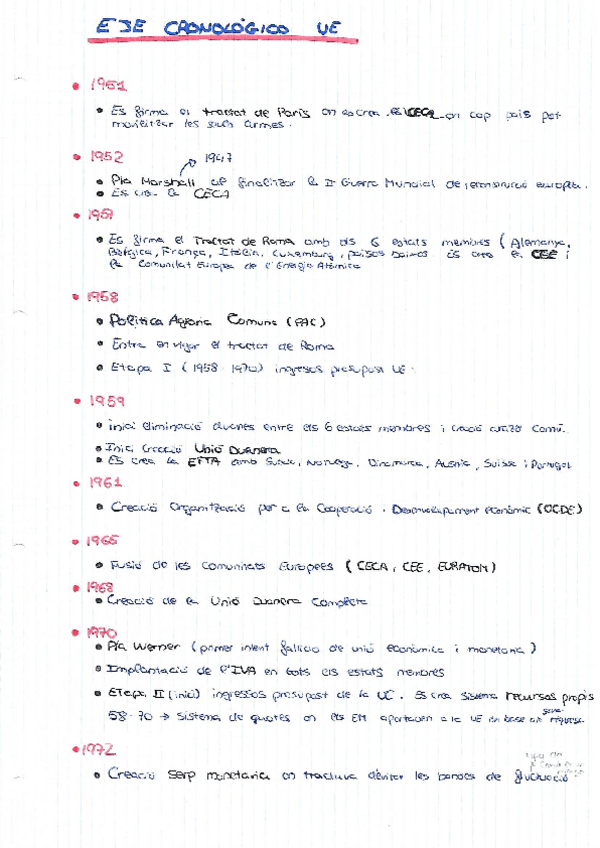 EJE CRONOLÓGICO UE
1951
Es firma el tractat de París on es crea la CECA on cap país pot
mobilitzar les seues armes.
1952
1947
Pla Marshall al finalitzar la II Guerra Mundial de reconstrucció europea.
Es crea la CECA
1957
Es firma el Tractat de Roma amb els 6 estats membres (Alemanya,
Bèlgica, França, Itàlia, Luxemburg, països baixos es crea la CEE i
la Comunitat Europea de l'Energia Atòmica
1958
Política Agrària Comuna (PAC)
Entra en vigor el tractat de Roma
Etapa I (1958-1970) ingresos presupost UE.
1959
Inici eliminació duanes entre els 6 estats membres i creació aranzel comú.
Inici Creació Unió Duanera
Es crea la EFTA amb Suècia, Noruega, Dinamarca, Àustria, Suïssa i Portugal
1961
Creació Organització per a la Cooperació i Desenvolupament econòmic (OCDE)
1965
Fusió de les Comunitats Europees (CECA, CEE, EURATOM)
1968
Creació de la Unió Duanera Completa
1970
Pla Werner (primer intent fallido de unió econòmica i monetaria)
Implantació de l'IVA en tots els estats membres
Etapa II (inici) ingressos presupost de la UE. Es crea sistema recursos propis
58-70 → Sistema de quotes on els EM aportaven a la UE en base a la seua riquesa.
1972
Creació Serp monetaria on tractava d'evitar les bandes de fluctuació